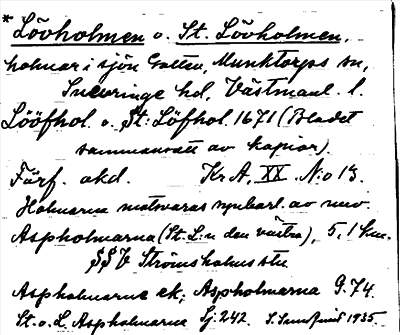 *Lövholmen o. St. Lövholmen,
holmar i sjön Galten, Munktorps sn,
Snevringe hd, Västmanl. l.
Lööfhol. o. St: Löfhol. 1671 (Bladet
sammansatt av kopior)
Förf. okd. Kr A, XX No 13.
Holmarna motsvaras uppenbarl. av nuv.
Aspholmarna (St. L:n den västra), 5,1 km.
SSV Strömsholms stn
Aspholmarne ek; Aspholmarna G. 74.
St. o. L. Aspholmarne Sj. 242. 1935.